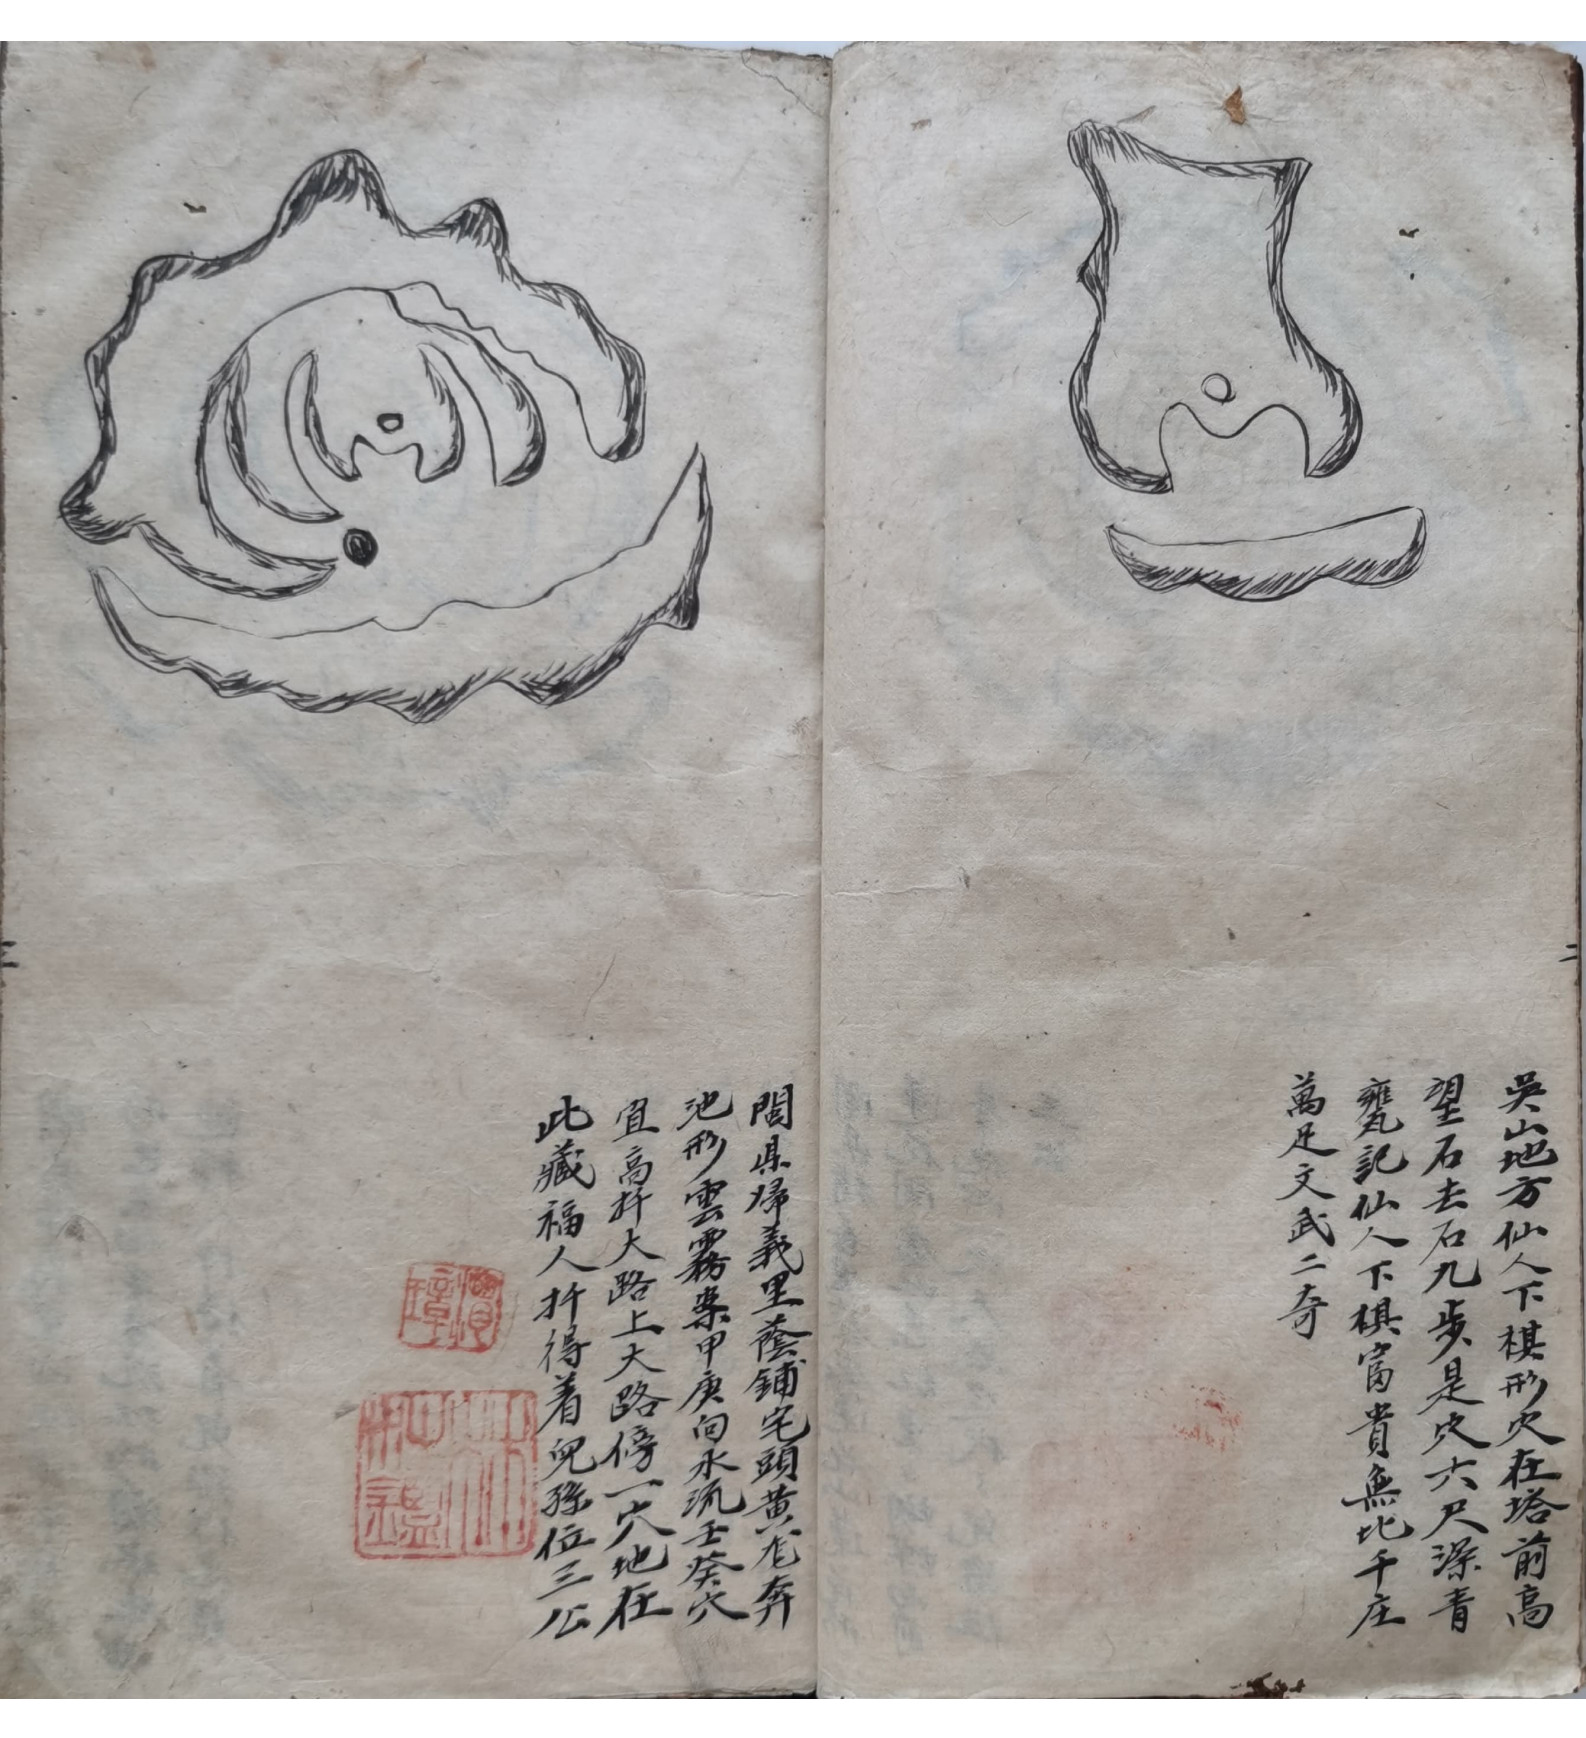 吳山地方仙人下棋形穴在塔前高
望石去石九步是穴六尺深青
甕記仙人下棋富貴無比千庄
萬足文武二奇
二
閭県歸義里蔭鋪宅頭黃尨奔
池形雲霧案甲庚向水流壬癸穴
宜高扦大路上大路傍一穴地在
此藏福人扦得着兒孫位三公
三